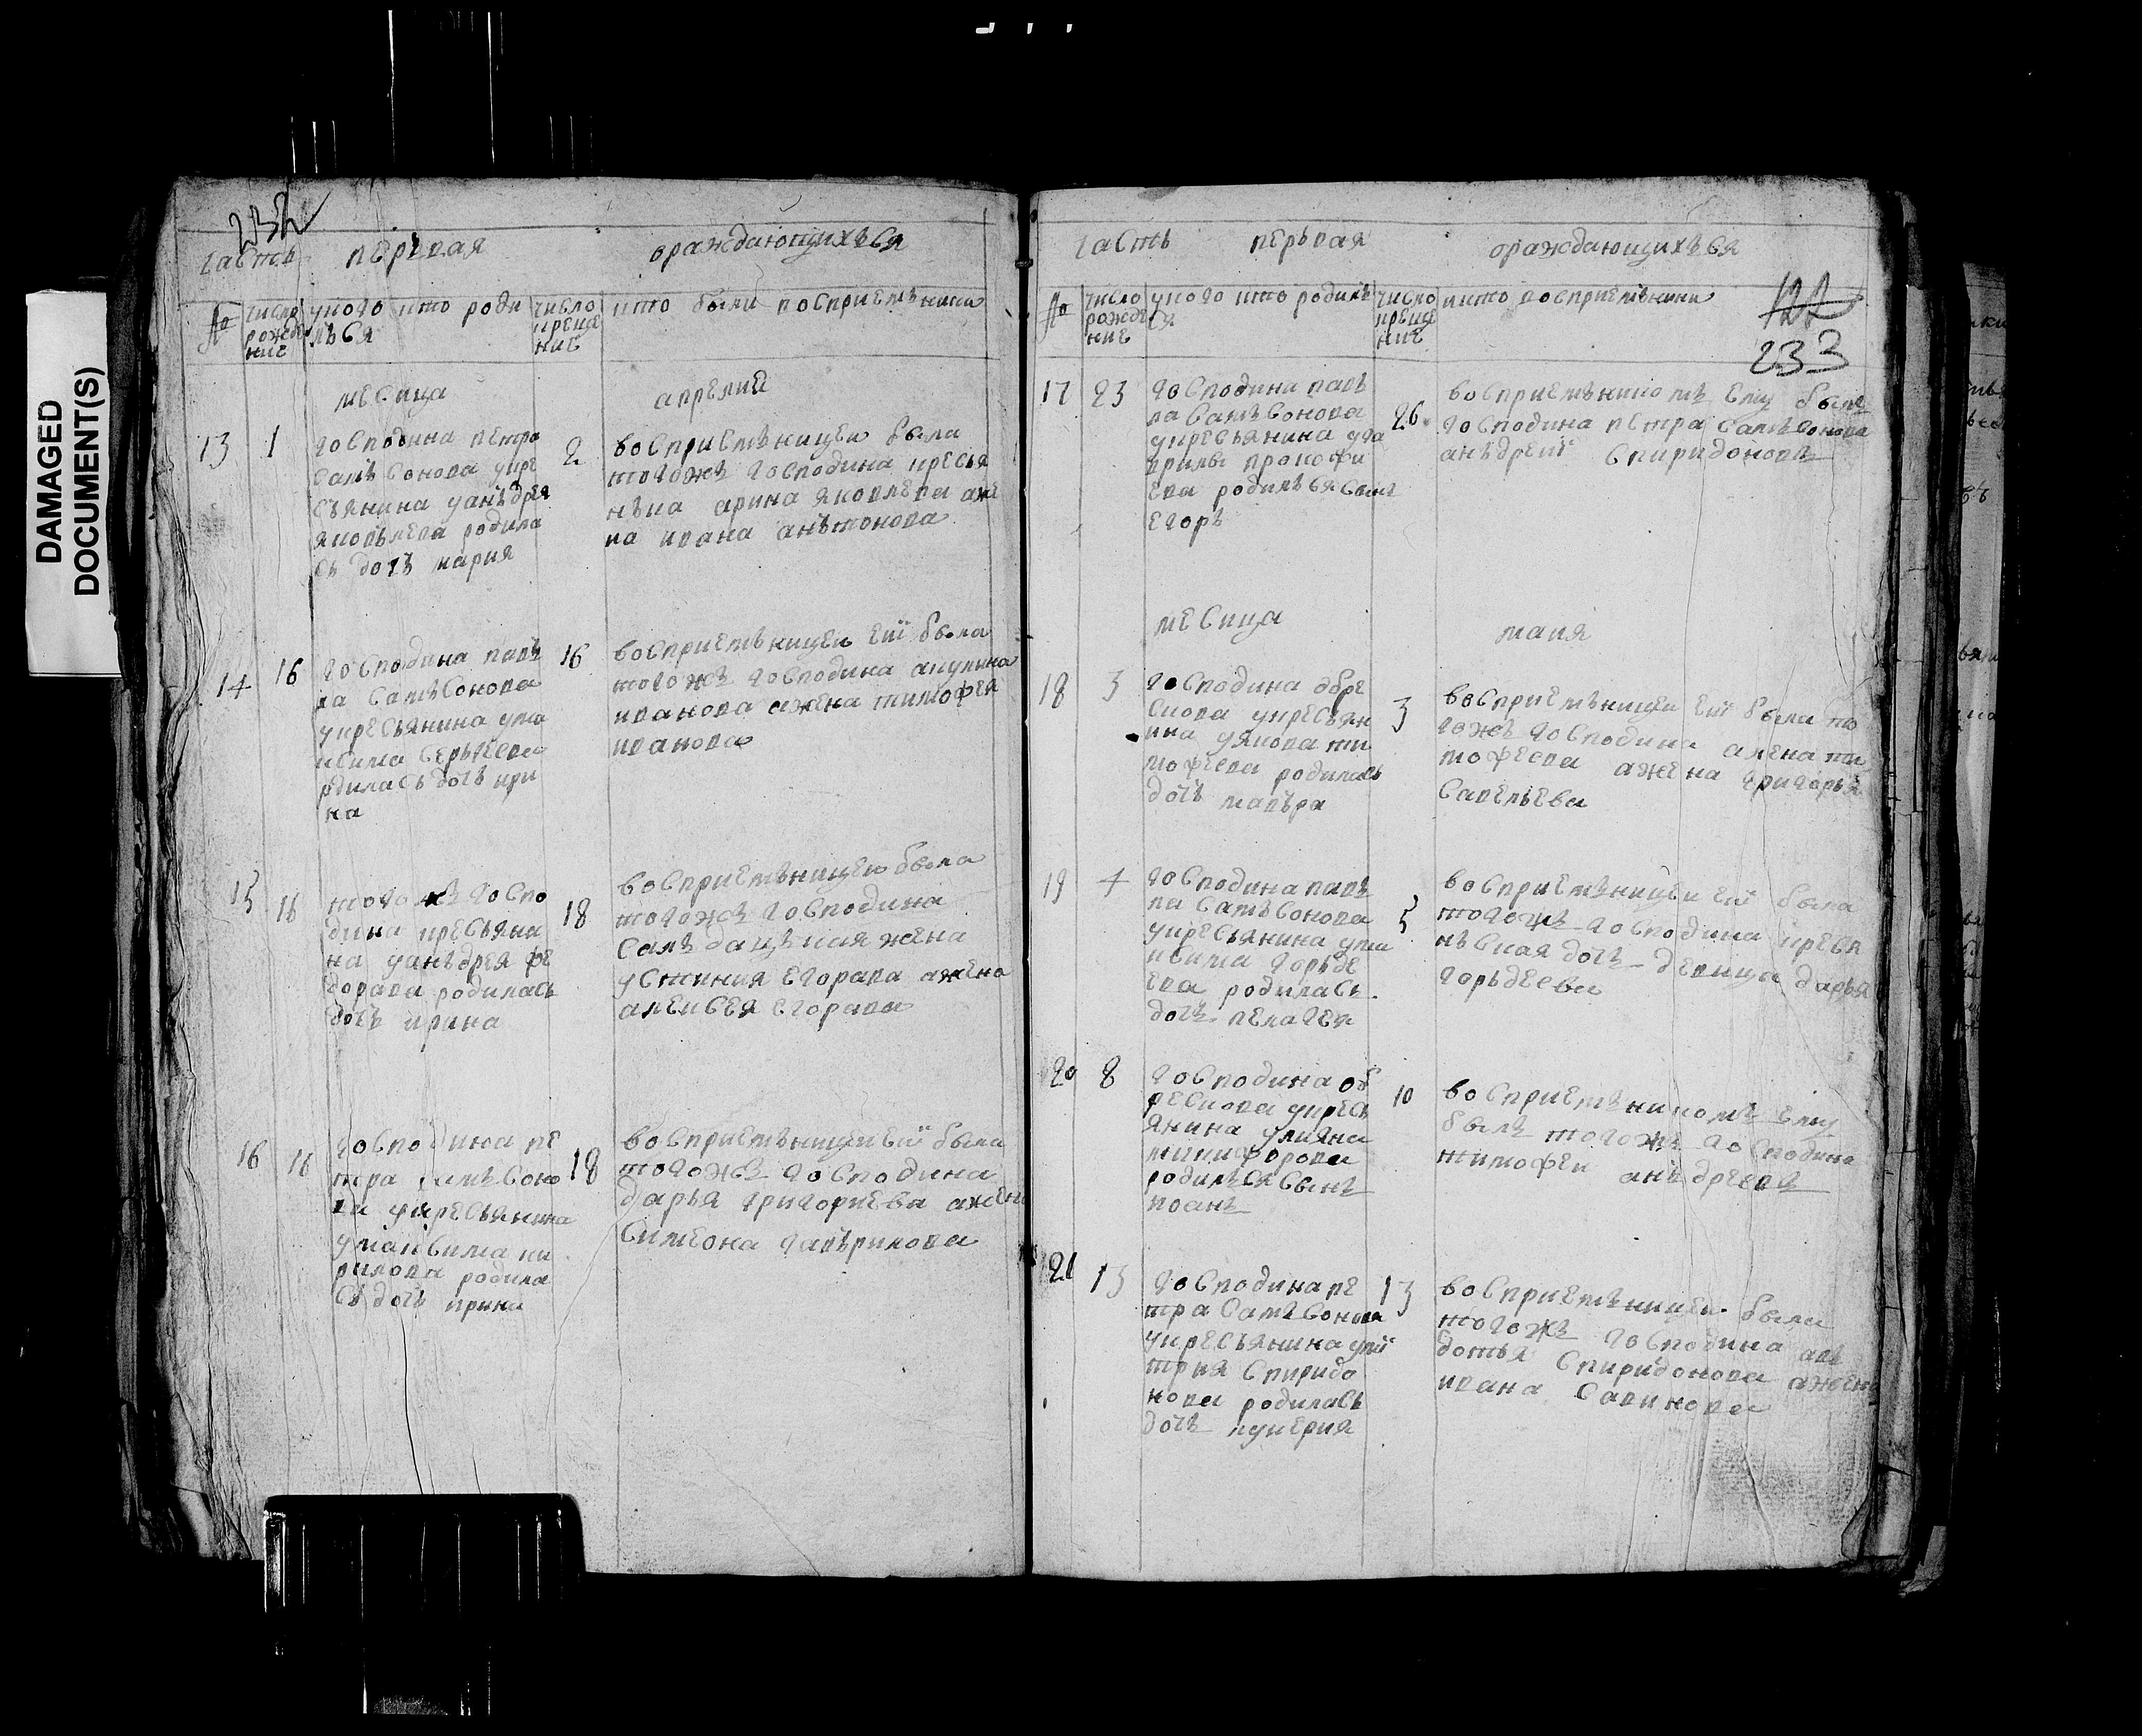 DAMAGED
DOCUMENT(S)
232
часть первая ораждающихъся
№ число рождение укого кто роди лься число крещение кто были восприемъники
месица апрелия
13 1 господина петра 2
самъсонова укре
сьянина уанъдрея
яковълева родила
сь дочь мария
восприемъницею была
тогожъ господина кресья
нъка арина яковлева аже
на ивана анътонова
14 16 господина павъ 16
ла самъсонова
укресьянина ума
ксима серьгеева
рдилась дочь ири
на
восприемъницею ей была
тогожъ господина акулина
иванова ажена тимофея
иванова
15 16 тогожъ госпо 18
дина кресьяни
на уанъдрея фе
дорава родилась
дочь ирина
восприемъницею была
тогожъ господина
салъдацъкая жена
устиния егорава ажена
алексея егорава
16 16 господина пе 18
тра самъсоно
ва укресьянина
умаксима ки
рилова родила
сь дочь ирина
восприемъницеи ей была
тогожъ господина
дарья григориева ажена
симеона гавърилова
часть перьвая ораждающихъся
№ число рождение укого кто родилъ ся число крещение кто восприемъники
122
233
17 23 господина павъ 26
ла самъсонова
укресьянина уга
врилы прокофи
ева родилъся сынъ
егоръ
восприемъникомъ ему былъ
господина петра самъсонова
анъдрей спиридоновъ
месица маия
18 3 господина обре 3
скова укресьян
ина уякова ти
мофеева родилась
дочь мавъра
восприемъницеи ей была то
гожъ господина алена ти
мофеева ажена григорья
савельева
19 4 господина павъ 5
ла самъсонова
укресьянина ума
ксима горьде
ева родилась
дочъ пелагея
восприемъницеи ей была
тогожъ господина кресья
нъская дочъ девица дарья
горьдеева
20 8 господина об 10
рескова укресь
янина улияна
никифорова
родилъся сынъ
иоанъ
восприемъникомъ ему
былъ тогожъ господина
тимофеи анъдреевъ
21 13 господина пе 13
тра самъсонова
укресьянина уми
трия спиридо
нова родилась
дочъ лукерия
восприемъницеи была
тогожъ господина авъ
дотья спиридонова ажена
ивана савинова